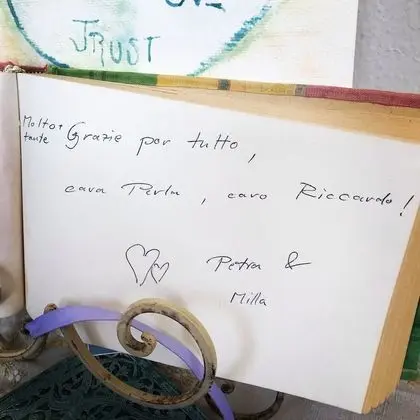 TRUST
Molto+ Grazie por tutto,
tante
cara Perla, caro Riccardo!
Petra &
Milla